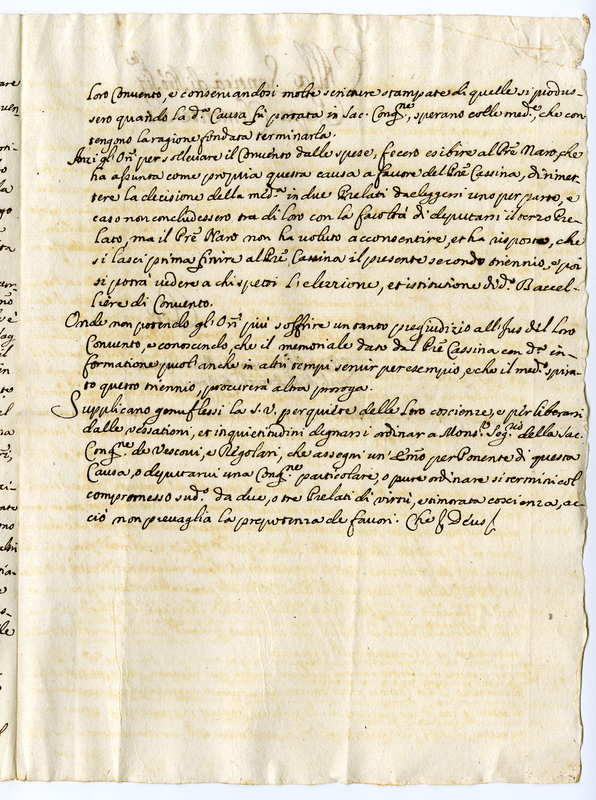 loro Convento, e conservandosi molte scritture stampate di quelle si produs-
sero quando la d.ª Causa fù portata in Sac. Cong.ne, sperano colle med.e, che con-
tengono la ragione fondata terminarla.
Anzi gli Or̃i per sollevare il Convento dalle spese, fecero esibire al Prẽ Naro, che
ha assunta come propria questa causa a favore del Prẽ Cassina, di rimet-
tere la decisione della med.ª in due Prelati da eleggersi uno per parte, e
caso non concludessero tra di loro con la facoltà di deputarsi il terzo Pre-
lato, ma il Prẽ Naro non ha voluto acconsentire, et ha risposto, che
si lasci prima finire al Prẽ Cassina il presente secondo triennio, e poi
si potrà vedere a chi spetti l'elezzione, et istituzione di d.º Baccel-
liere di Convento.
Onde non potendo gli Or̃i più soffrire un tanto pregiudizio all'Jus del loro
Convento, e conoscendo, che il memoriale dato dal Prẽ Cassina con d.ª in-
formatione puol'anche in altri tempi servir per esempio, e che il med.º spira-
to questo triennio, procurerà altra proroga.
Supplicano genuflessi la S.V. per quiete delle loro coscienze, e per liberarsi
dalle vessationi, et inquietitudini degnarsi ordinar a Mons.re Seg.rio della Sac.
Cong.ne de Vescovi, e Regolari, che assegni un' Em̃o per Ponente di questa
Causa, o deputarvi una Cong.ne particolare, o pure ordinare si termini col
compromesso sud.º da due, o tre Prelati di virtù, e timorata coscienza, ac-
ciò non prevaglia la prepotenza de favori. Che Deus